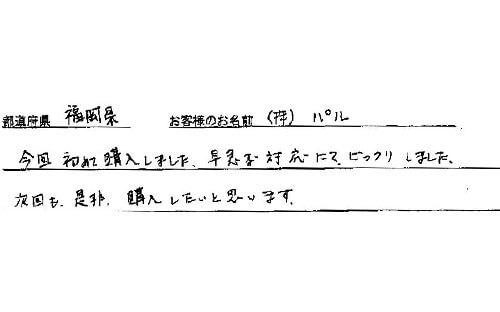 都道府県 福岡県 お客様のお名前 (株) パル
今回 初めて購入しました。早急な対応にて、ビックリしました。
次回も、是非、購入したいと思います。